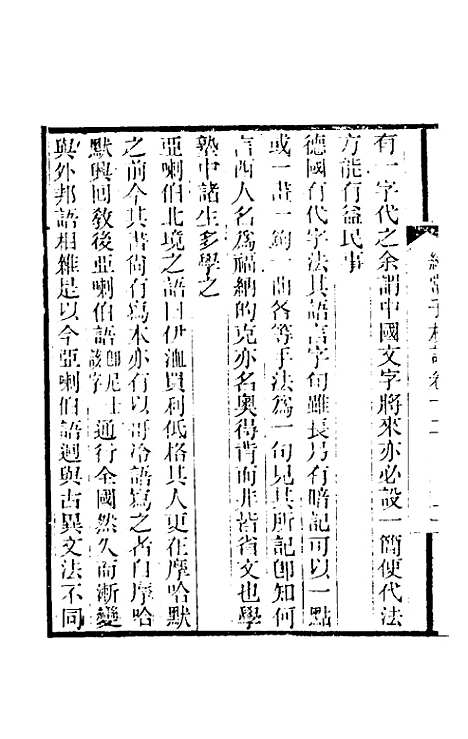 有一字代之余謂中國文字將來亦必設一簡便代法
方能有益民事
德國有代字法其語言字句雖長乃有暗記可以一點
或一畫一鉤一曲各等手法爲一句見其所記卽知何
言西人名爲福納的克亦名奧得背而非皆省文也學
塾中諸生多學之
亞喇伯北境之語曰伊買利低格其人更在摩哈默
之前今其書尙有爲本亦有以哥冷語爲之者自摩哈
默興回敎後亞喇伯語卽尼該字通行全國然久而漸變
與外邦語相雜是以今亞喇伯語迥與古異文法不同
卷十二